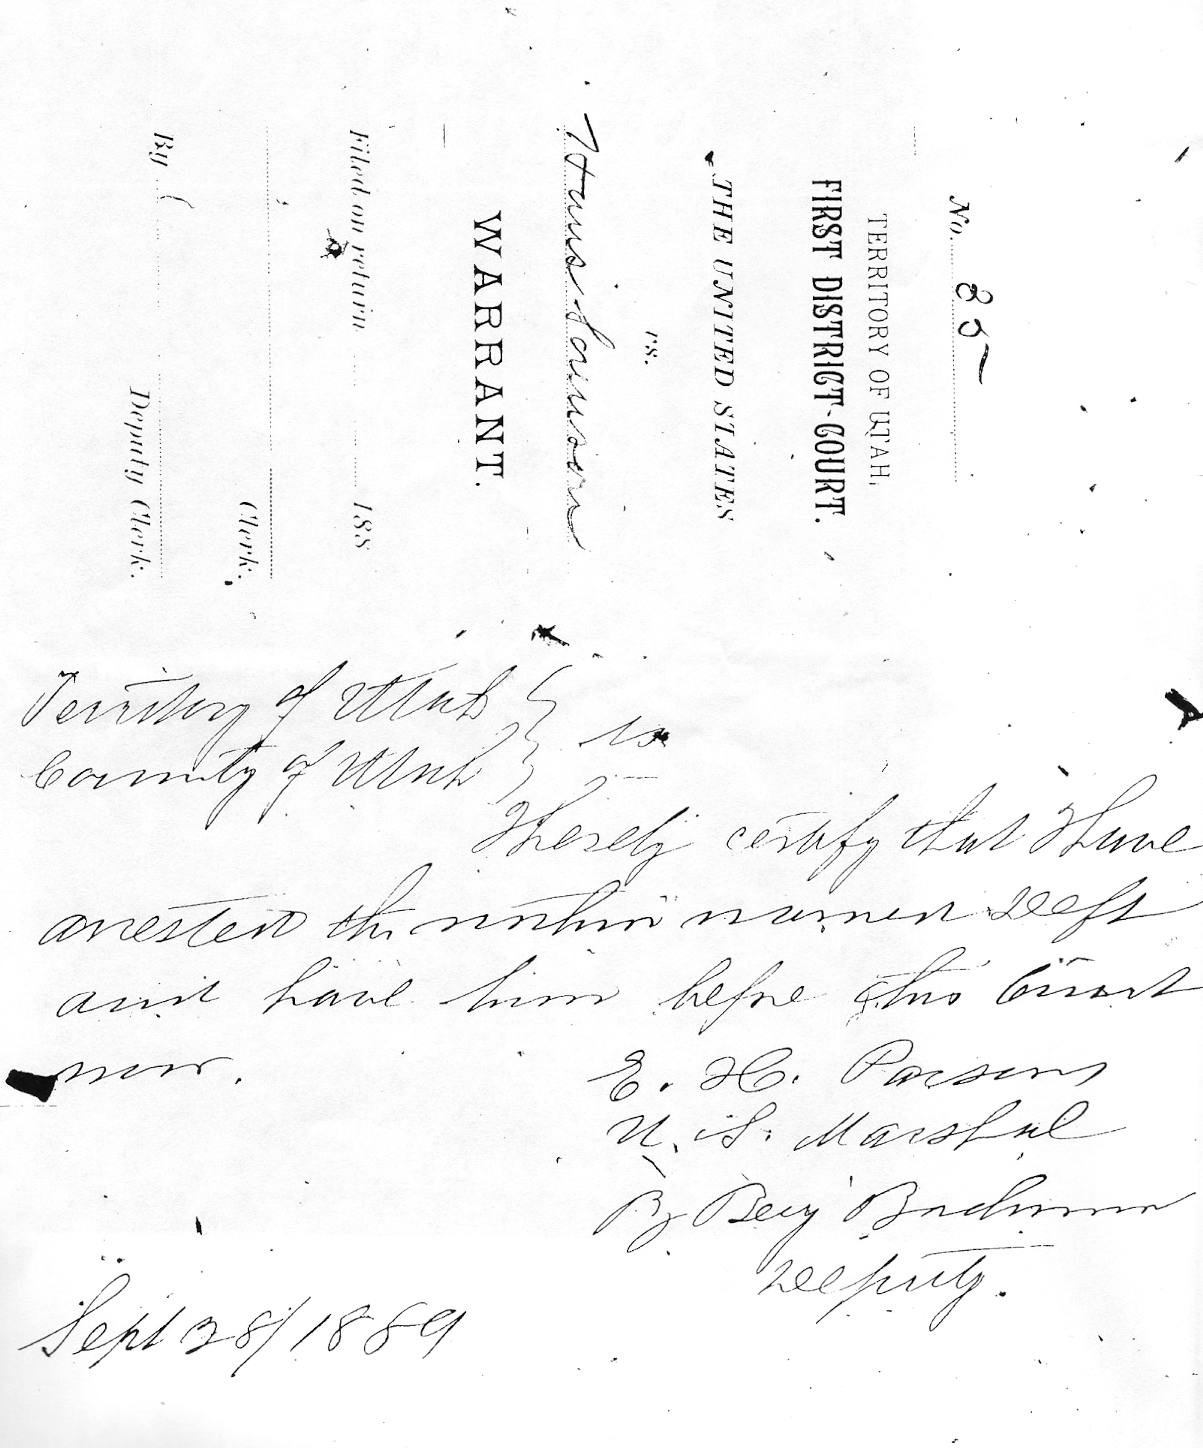 No. 85
TERRITORY OF UTAH.
FIRST DISTRICT COURT.
THE UNITED STATES
vs.
Hans
WARRANT.
Filed on return 188
Clerk.
By
Deputy Clerk.
Territory of Utah
County of Utah } ss
I hereby certify that I have
arrested the within named Deft
and have him before this Court
now.
E. H. Parsons
U. S. Marshal
By Benj
Deputy.
Sept 28/1889